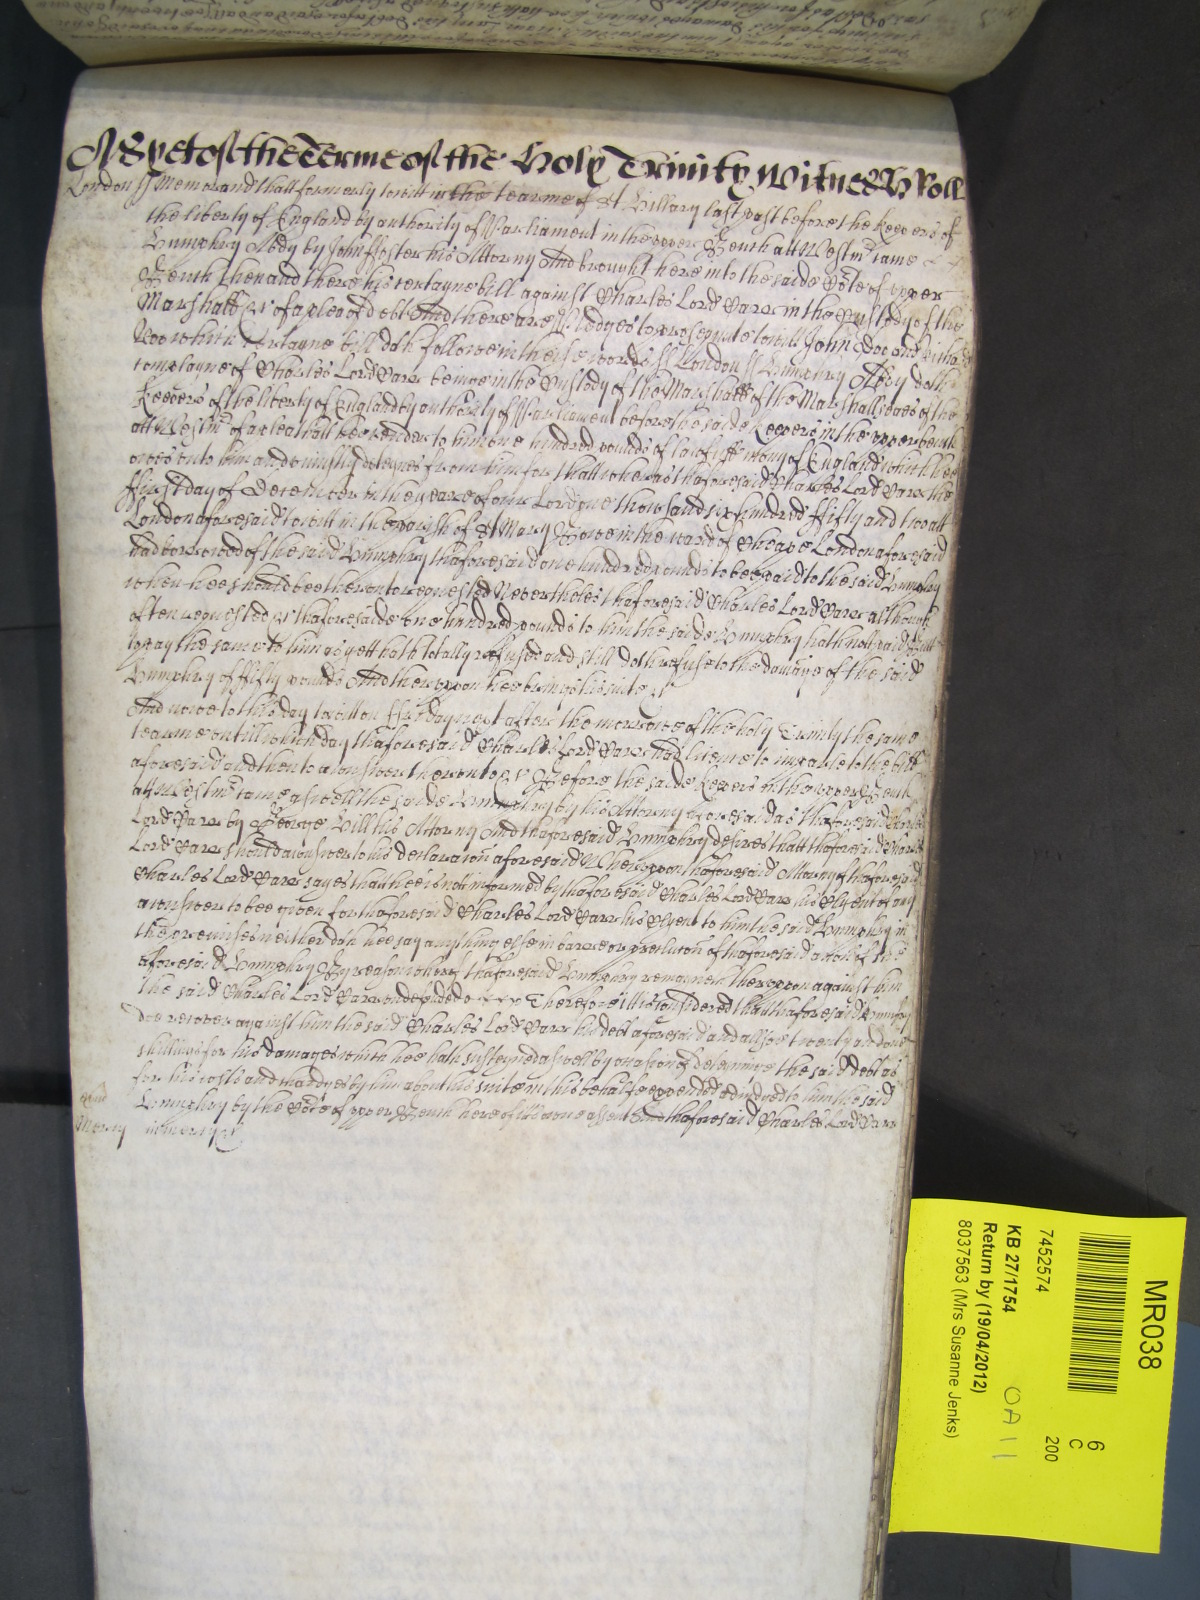 As yet of the Terme of the Holy Trinity Witnes H Roll
London ss Memorand thatt formerly towitt in the tearme of St Hillary last past before the Keepers of
the liberty of England by authority of Parliament in the upper Bench att Westmr came
Humphry Abdy by John Foster his Attorny And brought here into the saide Co͏̃te of upper
Bench then and there his certayne bill against Charles Lord Carr in the Custody of the
Marshall &c of a plea of debt And there are Pledges to prosequute towitt John Doe and Richard
Roe which Certayne bill doth followe in theise words ss London ss Humphry Abdy doth
complayne of Charles Lord Carr beinge in the Custody of the Marshall of the Marshallseaes of the
Keepers of the liberty of England by authority of Parliament before the saide Keepers in the upper bench
att Westmr of a plea thatt hee render to him one hundred pounds of lawfull mony of England which hee
owes unto him and uniustly deteynes from him for thatt wheras thaforesaid Charles Lord Carr the
first day of December in the yeare of our Lord one thowsand six hundred fifty and two att
London aforesaid towitt in the parish of St Mary Bowe in the ward of Cheape London aforesaid
had borrowed of the said Humphry thaforesaid one hundred pounds to bee paid to the said Humphry
when hee should bee therunto requested Neverthelesse thaforesaid Charles Lord Carr although
often requested &c thaforesaide one hundred pounds to him the saide Humphry hath nott paid Butt
to pay the same to him as yett hath totally refused and still doth refuse to the damage of the said
Humphry of fifty pounds And therupon hee brings his suite &c
And nowe to this day towitt on fryday next after the morrowe of the holy Trinity the same
tearme untill which day thaforesaid Charles Lord Carr had licence to imparle to the bill
aforesaid and then to answer therunto &c Before the saide Keepers in the upper Bench
att Westmr came aswell the saide Humphry by his Attorny aforesaid as thaforesaid Charles
Lord Carr by George Hill his Attorny And thaforesaid Humphry desires thatt thaforesaid Charles
Lord Carr should answer to his declaracon aforesaid Wherupon thaforesaid Attorny of thaforesaid
Charles Lord Carr sayes thatt hee is nott informed by thaforesaid Charles Lord Carr his Clyent of any
answer to bee given for thaforesaid Charles Lord Carr his Clyent to him the said Humphry in
the premisses neither doth hee say anything else in barre or preclucon of thaforesaid action of the
aforesaid Humphry By reason wherof thaforesaid Humphry remaines therupon against him
the said Charles Lord Carr undefended &c Therefore itt is considered thatt thaforesaid Humfry
doe recover against him the said Charles Lord Carr his debt aforesaid and allsoe twenty and one
shillings for his damages which hee hath susteyned aswell by occasion of deteininge the said debt as
for his costs and chardges by him about his suite in this behalfe expended adiudged to him the said
Humphry by the Co͏̃te of upper Bench here of his owne assent And thaforesaid Charles Lord Carr
Mercy in mercy &c
MR038
6
C
7452574
200
KB 27/1754
Return by (19/04/2012)
8037563 (Mrs Susanne Jenks)